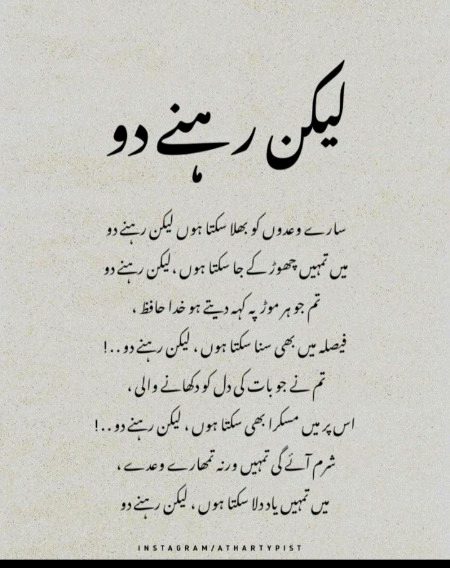 لیکن رہنے دو
سارے وعدوں کو بھلا سکتا ہوں لیکن رہنے دو
میں تمہیں چھوڑ کے جا سکتا ہوں ، لیکن رہنے دو
تم جو ہر موڑ پہ کہہ دیتے ہو خدا حافظ ،
فیصلہ میں بھی سنا سکتا ہوں ، لیکن رہنے دو . . !
تم نے جو بات کی دل کو دکھانے والی ،
اس پر میں مسکرا بھی سکتا ہوں ، لیکن رہنے دو . . !
شرم آئے گی تمہیں ورنہ تمھارے وعدے ،
میں تمہیں یاد دلا سکتا ہوں ، لیکن رہنے دو
INSTAGRAM/ATHARTYPIST